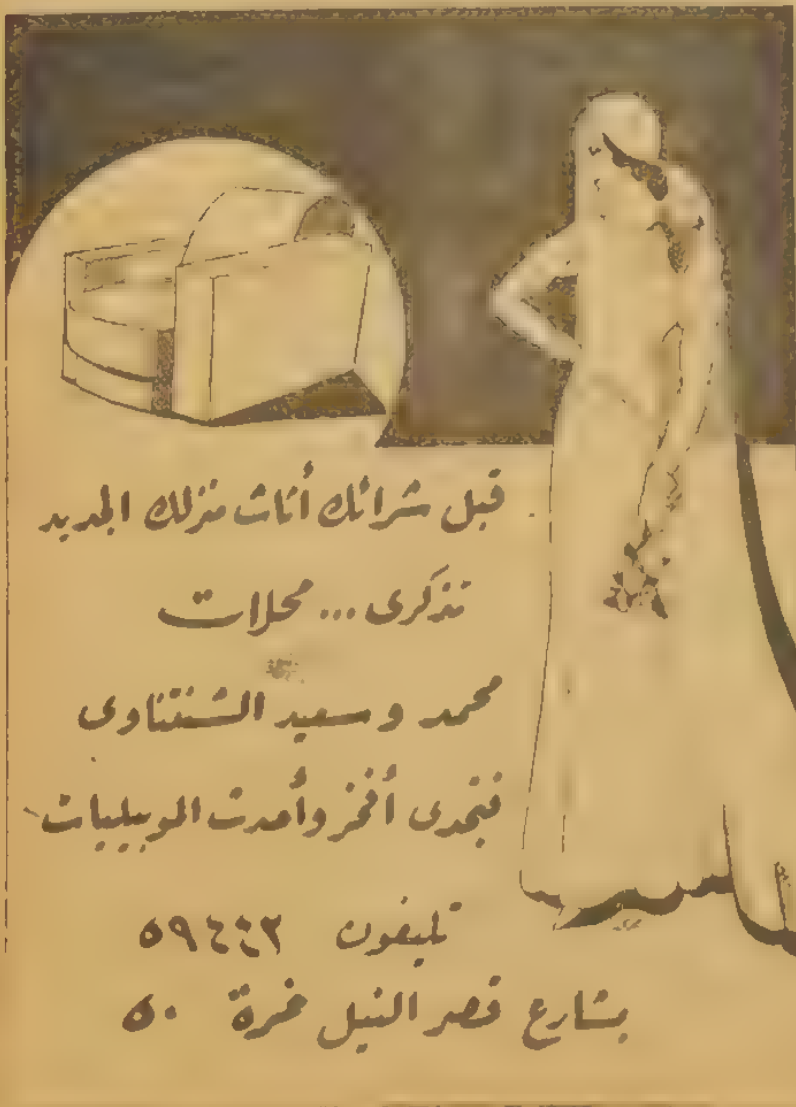 قبل شرائك أثاث منزلك الجديد
تذكرى ... محلات
محمد وسعيد الششتاوى
فتجدى أفخر وأحدث الموبيليات
تليفون ٥٩٤٤٢
بشارع قصر النيل نمرة ٥٠